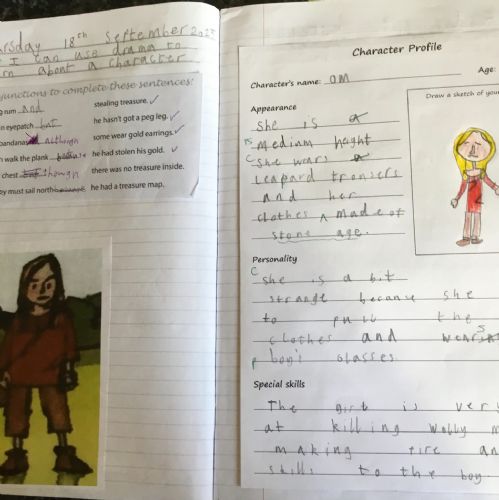 rsday 18th September 2025
I can use drama to
rn about a character
junctions to complete these sentences!
g rum and
stealing treasure.
n eyepatch but
he hasn't got a peg leg.
bandanas although
some wear gold earrings.
n walk the plank because
he had stolen his gold.
chest though
there was no treasure inside.
ey must sail north because
he had a treasure map.
Character Profile
Character's name: om
Age:
Appearance
She is a
medium height
She wars a
Leapard trousers
and her
clothes ^ made of
stone age.
Draw a sketch of your
Personality
She is a bit
strange because she
to pull the
clothes and wears
boy's glasses
Special skills
The girl is very
at killing wolly m
making fire an
skills to the boy